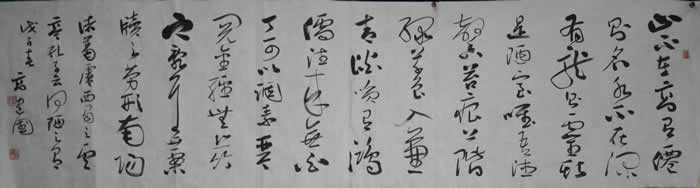 山不在高有僊
則名水不在深
有龍則靈斯
是陋室唯吾德
馨苔痕上階
綠草色入簾
青談笑有鴻
儒往來無白
丁可以調素琴
閱金經無絲竹
之亂耳無案
牘之勞形南陽
諸葛廬西蜀子雲
亭孔子云何陋之有
戊子